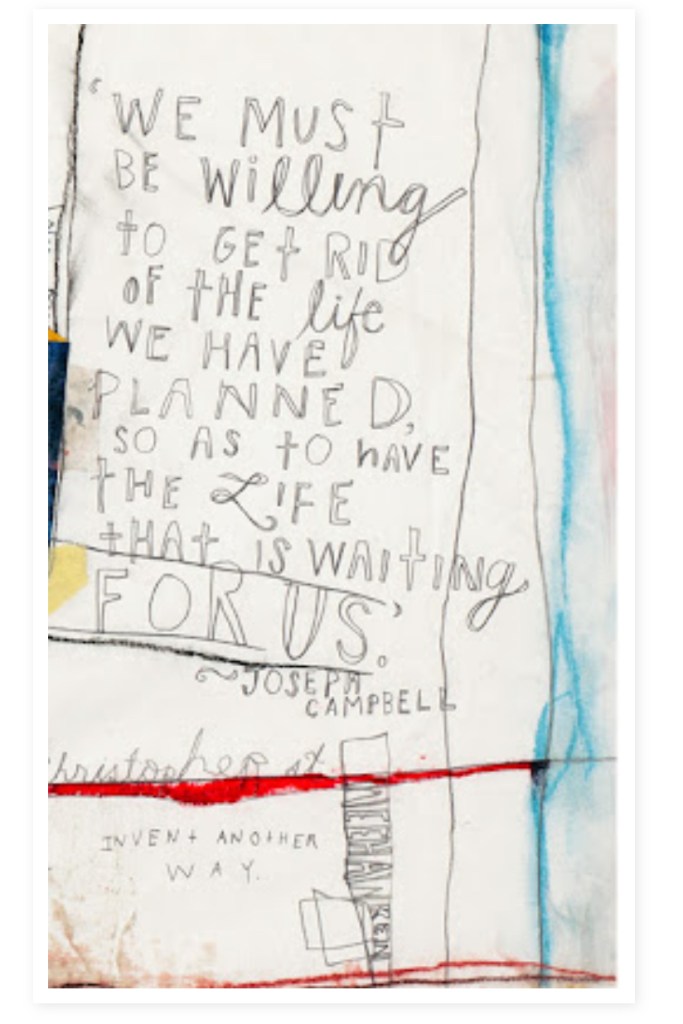 ‘WE MUST
BE Willing
TO GET RID
OF THE life
WE HAVE
PLANNED,
SO AS TO hAVE
THE LIFE
THAT IS WAITING
FOR US.’
~JOSEPH
CAMPBELL
christopher st
INVENT ANOTHER
WAY.
WEEHAWKEN